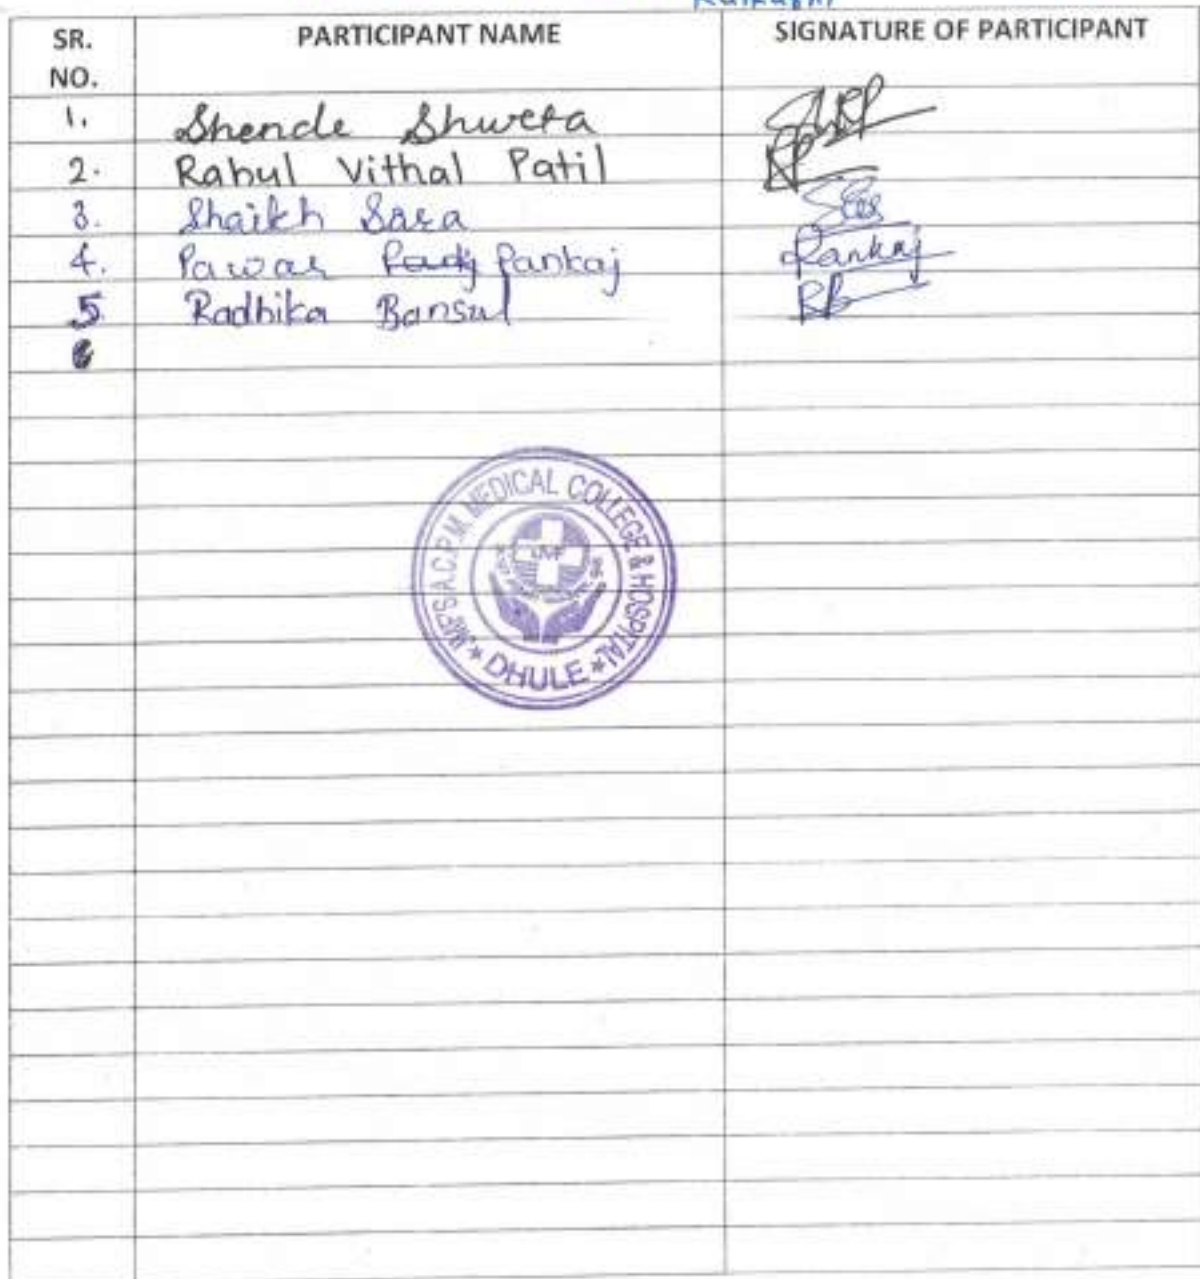 SR. NO. PARTICIPANT NAME SIGNATURE OF PARTICIPANT
1. Shende Shweta
2. Rahul Vithal Patil
3. Shaikh Sara
4. Pawar Pankaj Pankaj
5 Radhika Bansal RB
JMF'S A.C.P.M. MEDICAL COLLEGE & HOSPITAL
* DHULE *